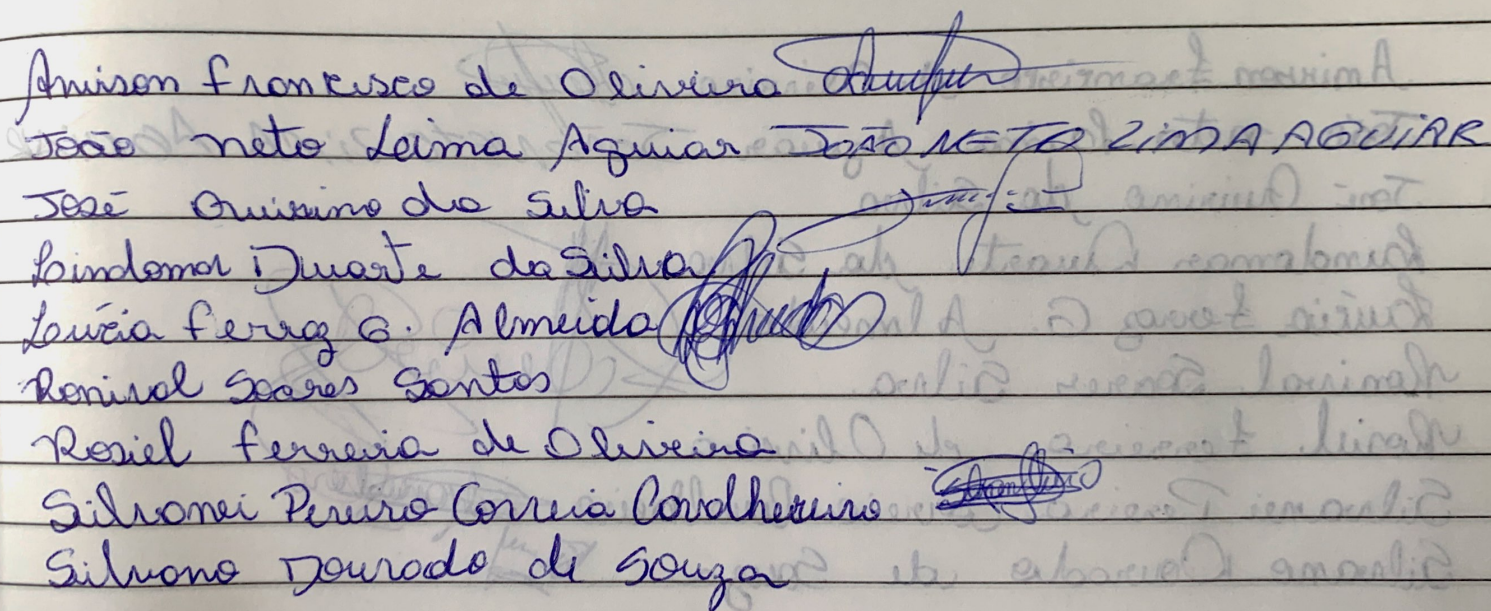 Amison Francisco de Oliveira
João neto Leima Aguiar JOÃO NETO LIMA AGUIAR
José Quirino da Silva
Lindomar Duarte da Silva
Lúcia Ferraz G. Almeida
Ronival Soares Santos
Rosiel Ferreira de Oliveira
Silvanei Pereira Correia Cavalheiro
Silvano Dourado de Souza